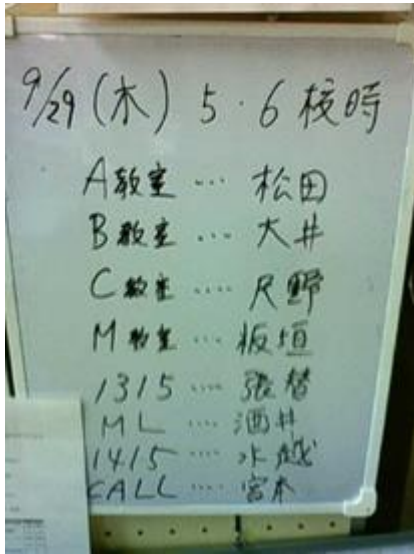 9/29 (木) 5・6校時
A教室 … 松田
B教室 … 大井
C教室 …. 尺野
M教室 … 板垣
1315 …. 張替
ML …. 酒井
1415 …. 水越
CALL …. 宮本